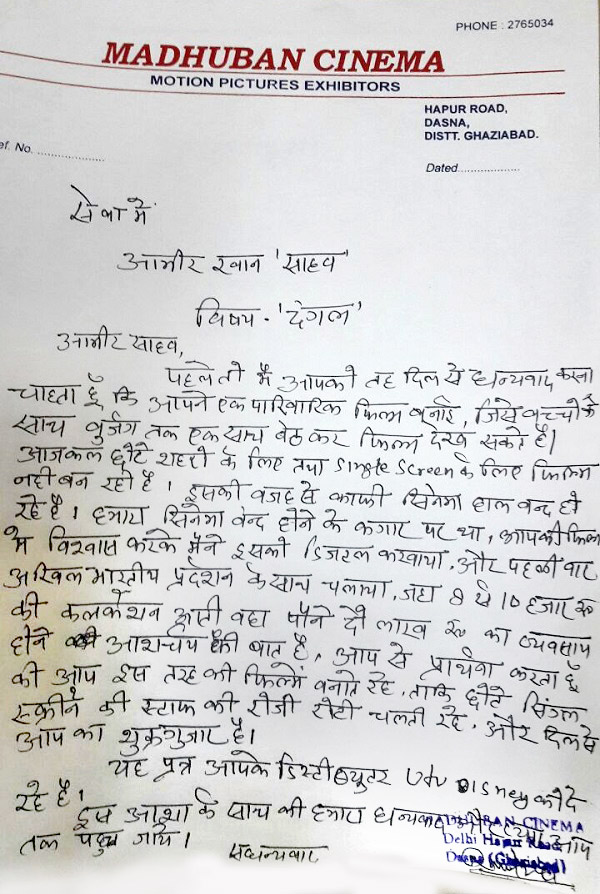 PHONE : 2765034
MADHUBAN CINEMA
MOTION PICTURES EXHIBITORS
HAPUR ROAD,
DASNA,
DISTT. GHAZIABAD.
ef. No. ..................
Dated...................
सेवा में
आमीर खान 'साहब'
विषय - 'दंगल'
आमीर साहब,
पहले तो मैं आपको तह दिल से धन्यवाद करना
चाहता हूँ कि आपने एक पारिवारिक फिल्म बनाई, जिसे बच्चो के
साथ बुर्जग तक एक साथ बैठ कर फिल्म देख सकते है।
आजकल छोटे शहरो के लिए तथा Single Screen के लिए फिल्म
नही बन रही है। इसकी वजह से काफी सिनेमा हाल बन्द हो
रहे है। हमारा सिनेमा बन्द होने के कगार पर था, आपकी फिल्म
मे विश्वास करके मैंने इसको डिजटल करवाया, और पहली बार
अखिल भारतीय प्रदेशन के साथ चलाया, जहा 8 से 10 हजार रू
की कलकेशन आती वहा पौने दो लाख रू का व्यवसाय
होने आशचर्य की बात है, आप से प्रार्थना करता हूँ
की आप इस तरह की फिल्मे बनाते रहे, ताकि छोटे सिंगल
स्क्रीन की स्टाफ की रोजी रोटी चलती रहे, और दिल से
आप का शुक्रगुजार है।
यह पत्र आपके डिस्टीब्यूटर Utv Disney को दे
रहे है।
इस आशा के साथ की हमारा धन्यवाद आप
तक पहुच जाये।
सधन्यवाद
MADHUBAN CINEMA
Delhi Hapur Road
Dasna (Ghaziabad)